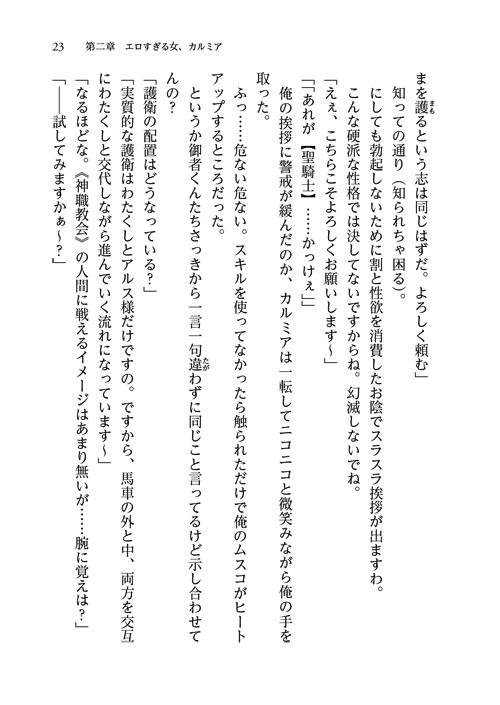 23　第二章　エロすぎる女、カルミア
まを護るという志は同じはずだ。よろしく頼む」
知っての通り（知られちゃ困る）。
にしても勃起しないために割と性欲を消費したお陰でスラスラ挨拶が出ますわ。
こんな硬派な性格では決してないですからね。幻滅しないでね。
「えぇ、こちらこそよろしくお願いします～」
「「あれが【聖騎士】……かっけぇ」」
俺の挨拶に警戒が緩んだのか、カルミアは一転してニコニコと微笑みながら俺の手を
取った。
ふっ……危ない危ない。スキルを使ってなかったら触られただけで俺のムスコがヒート
アップするところだった。
というか御者くんたちさっきから一言一句違わずに同じこと言ってるけど示し合わせて
んの？
「護衛の配置はどうなっている？」
「実質的な護衛はわたくしとアルス様だけですの。ですから、馬車の外と中、両方を交互
にわたくしと交代しながら進んでいく流れになっています～」
「なるほどな。《神職教会》の人間に戦えるイメージはあまり無いが……腕に覚えは？」
「――試してみますかぁ～？」